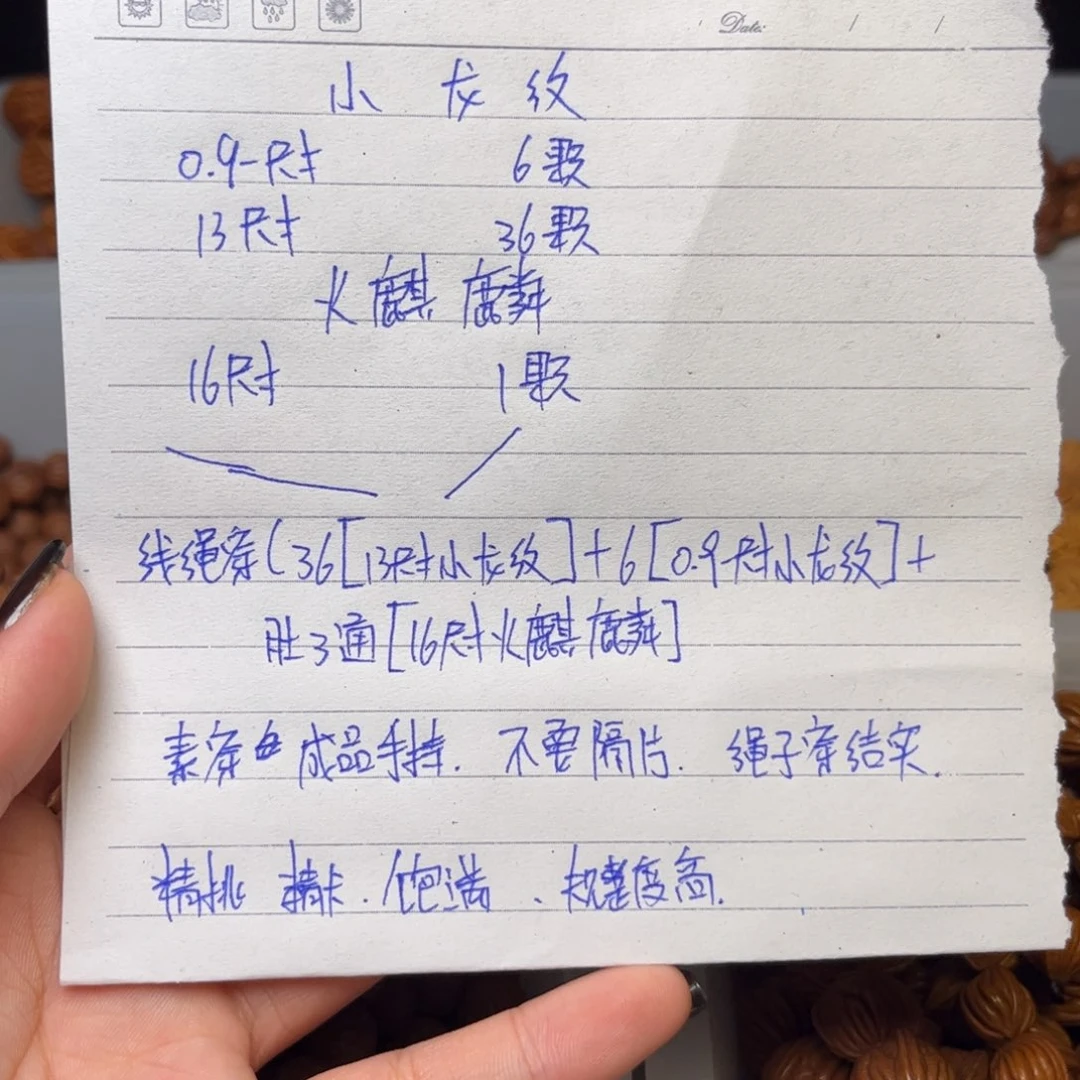 Date: / /
小龙纹
0.9尺寸 6颗
13尺寸 36颗
火麒麟
16尺寸 1颗
线绳穿(36[13尺寸小龙纹]+6[0.9尺寸小龙纹]+
肚3通[16尺寸火麒麟]
素穿 成品手持. 不要隔片. 绳子穿结实.
精挑 精卡. 饱满、 整度高.